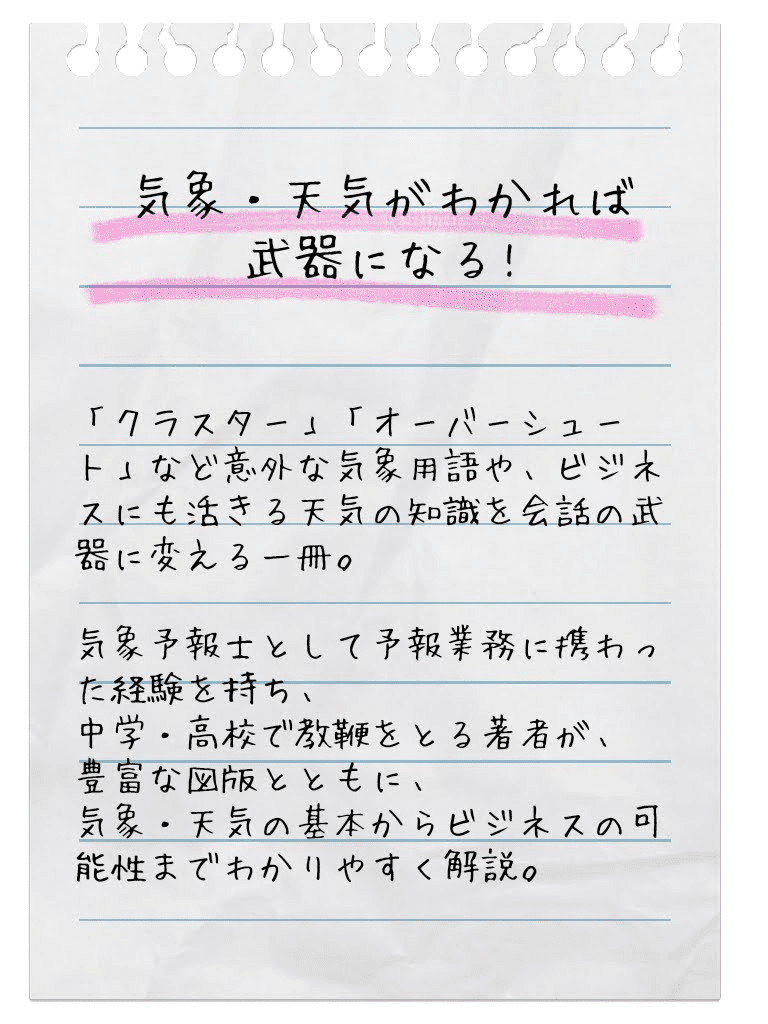 気象・天気がわかれば
武器になる!
「クラスター」「オーバーシュー
ト」など意外な気象用語や、ビジネ
スにも活きる天気の知識を会話の武
器に変える一冊。
気象予報士として予報業務に携わっ
た経験を持ち、
中学・高校で教鞭をとる著者が、
豊富な図版とともに、
気象・天気の基本からビジネスの可
能性までわかりやすく解説。